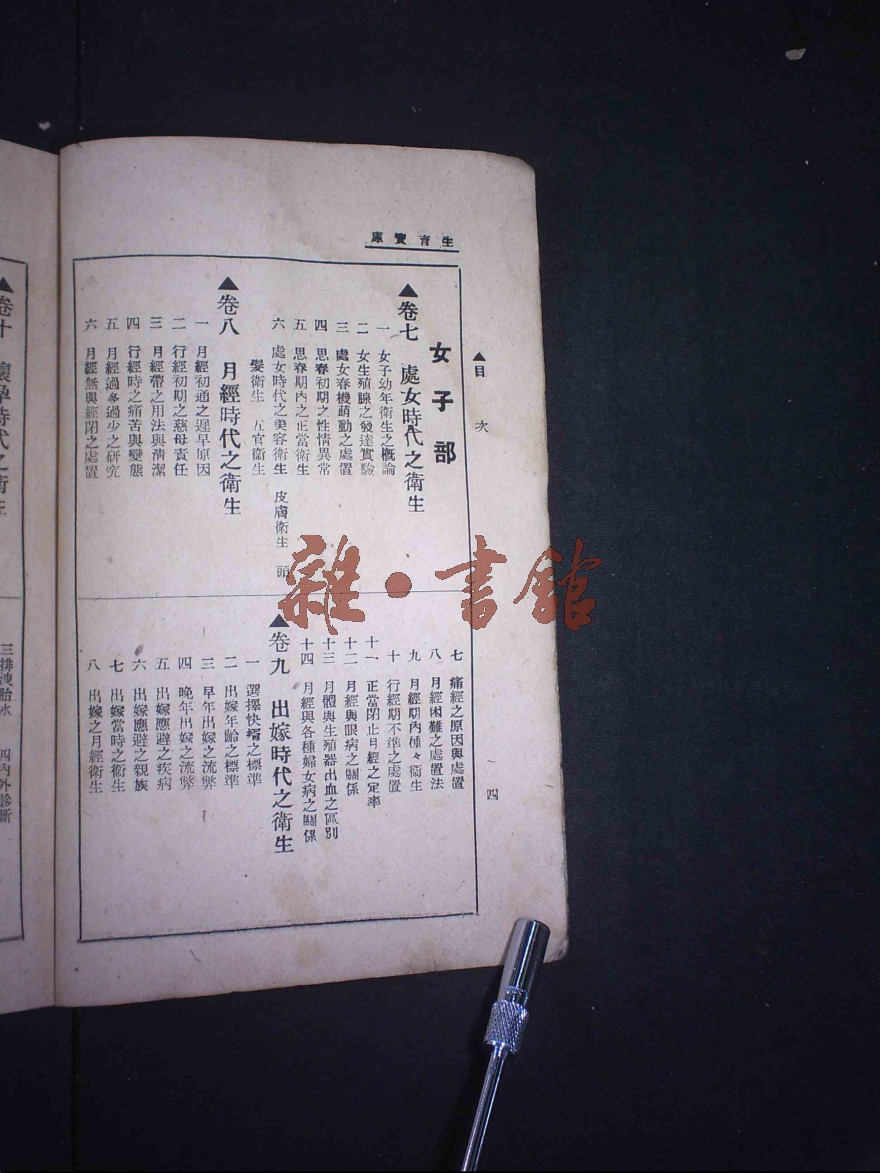 生育寶庫
▲目次
四
女子部
▲卷七 處女時代之衛生
一 女子幼年衛生之概論
二 女生殖腺之發達實驗
三 處女春機萌動之處置
四 思春初期之性情異常
五 思春期內之正當衛生
六 處女時代之美容衛生 皮膚衛生 頭
髮衛生 五官衛生
▲卷八 月經時代之衛生
一 月經初通之遲早原因
二 行經初期之慈母責任
三 月經帶之用法與清潔
四 行經時之痛苦與變態
五 月經過多過少之研究
六 月經無與經閉之處置
七 痛經之原因與處置
八 月經困難之處置法
九 月經期內種々衛生
十 行經期不準之處置
十一 正當閉止月經之定率
十二 月經與眼病之關係
十三 月體與生殖器出血之區別
十四 月經與各種婦女病之關係
▲卷九 出嫁時代之衛生
一 選擇快壻之標準
二 出嫁年齡之標準
三 早年出嫁之流弊
四 晚年出嫁之流弊
五 出嫁應避之疾病
六 出嫁應避之親族
七 出嫁當時之衛生
八 出嫁之月經衛生
▲卷十 懷孕時代之衛生
三排洩胎水 四內外診斷
雜·書館